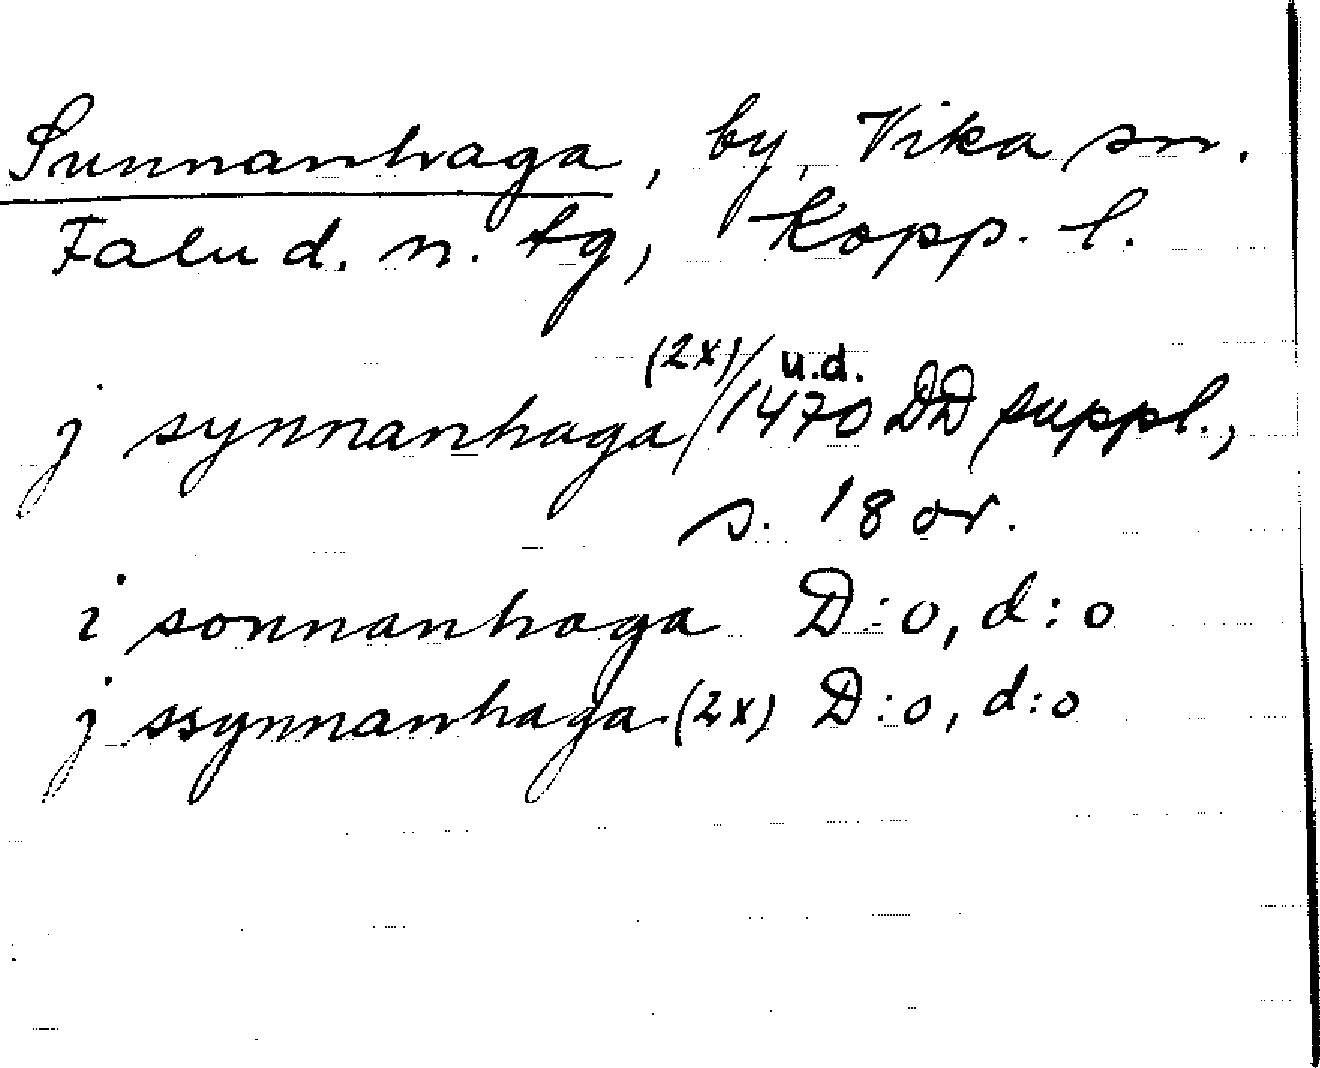 Sunnanhaga, by, Vika sn.
Falu d. n. tg, Kopp. l.
j synnanhaga (2x)/ u.d. 1470 DD suppl.,
s. 18 or.
i sonnanhaga D:o, d:o
j ssynnanhaga (2x) D:o, d:o